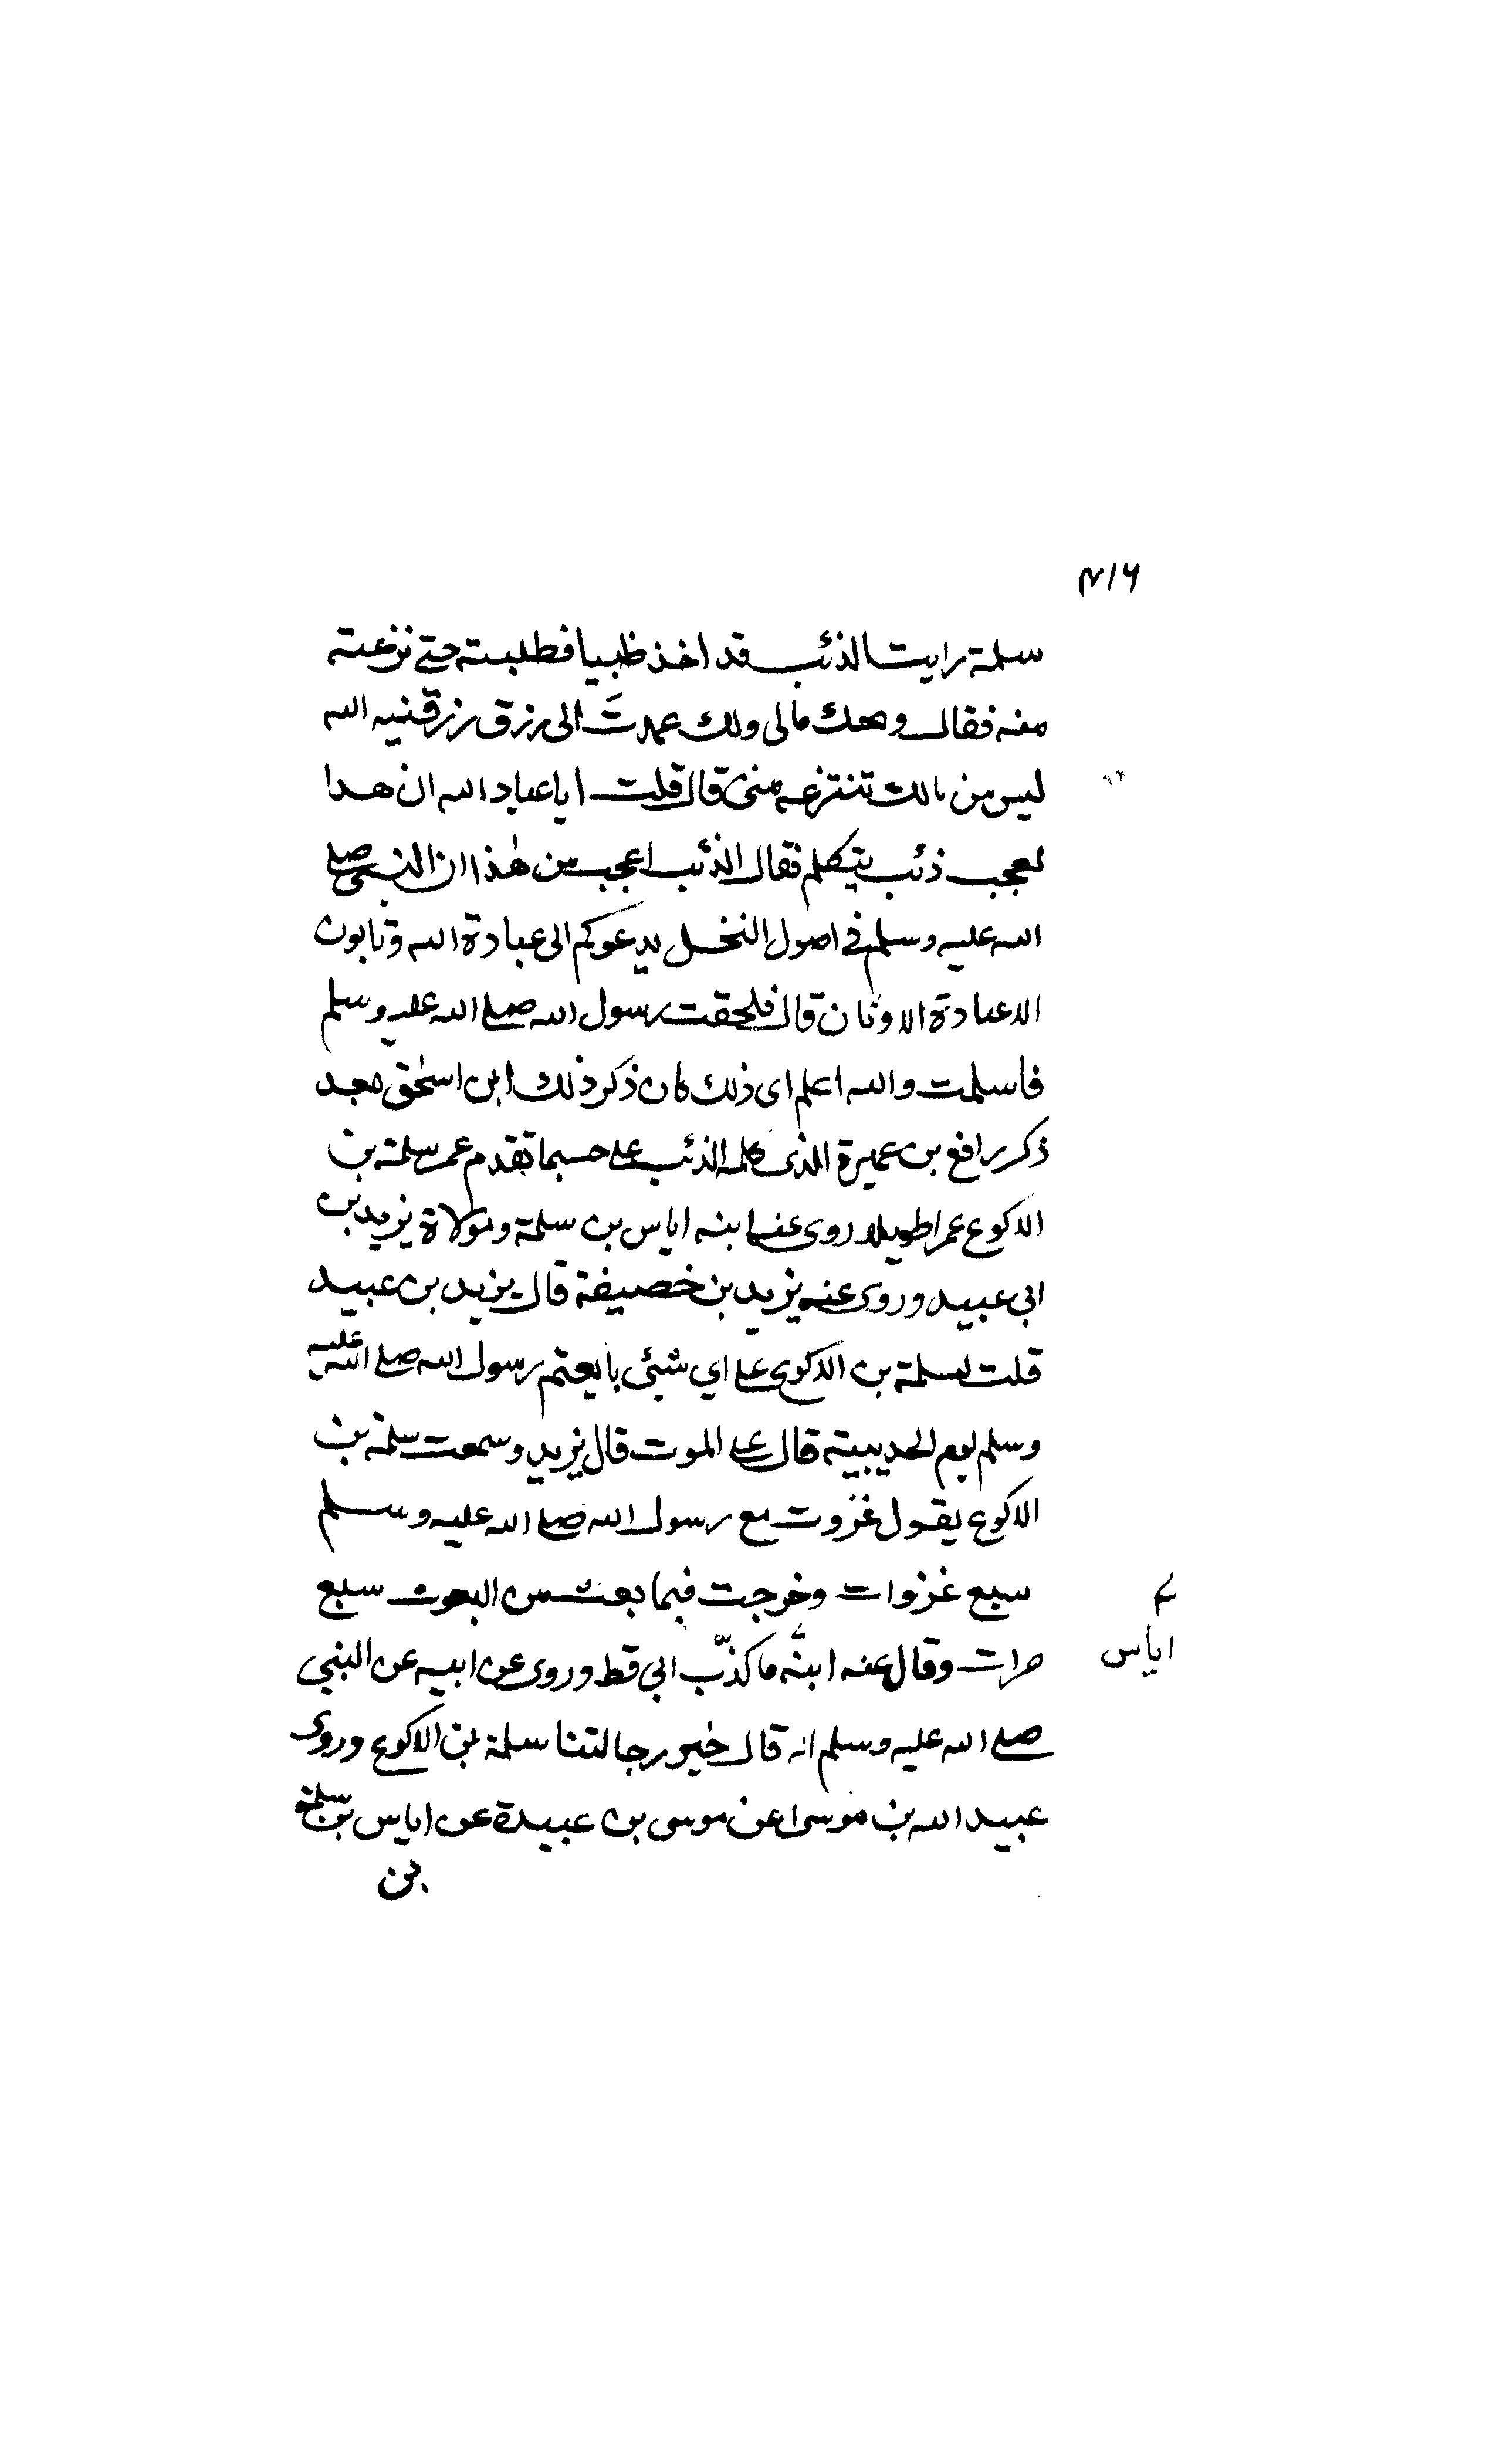 ٤١٦
سلمة رايت الذئب قد اخذ ظبيا فطلبته حتى نزعته
منه فقال ويحك مالى ولك عمدتَ الى رزق رزقنيه الله
ليس من مالك تنتزعه منى قال قلت ايا عباد الله ان هذا
لعجب ذئب يتكلم فقال الذئب اعجب من هٰذا ان النبى صلى
الله عليه وسلم فى اصول النخل يدعوكم الى عبادة الله وتابون
الا عبادة الاوثان قال فلحقت برسول الله صلى الله عليه وسلم
فاسلمت والله اعلم اى ذلك كان ذكر ذلك ابن اسحٰق بعد
ذكر رافع بن عميرة الذى كلمه الذئب على حسبما تقدم عمر سلمة بن
الاكوع عمرا طويلا روى عنه ابنه اياس بن سلمة ومولاة يزيد بن
ابى عبيد وروى عنه يزيد بن خصيفة قال يزيد بن عبيد
قلت لسلمة بن الاكوع على اي شيئى بايعتم رسول الله صلى الله عليه
وسلم يوم الحديبية قال على الموت قال يزيد وسمعت سلمة بن
الاكوع يقول غزوت مع رسول الله صلى الله عليه وسلم
سبع غزوات وخرجت فيما بعث من البعوث سبع
مرات وقال عنه ابنه ما كذّب ابى قط وروى عن ابيه عن النبى
اياس
صلى الله عليه وسلم انه قال خير رجالتنا سلمة بن الاكوع وروى
عبيد الله بن موسى عن موسى بن عبيدة عن اياس بن سلمة
بن